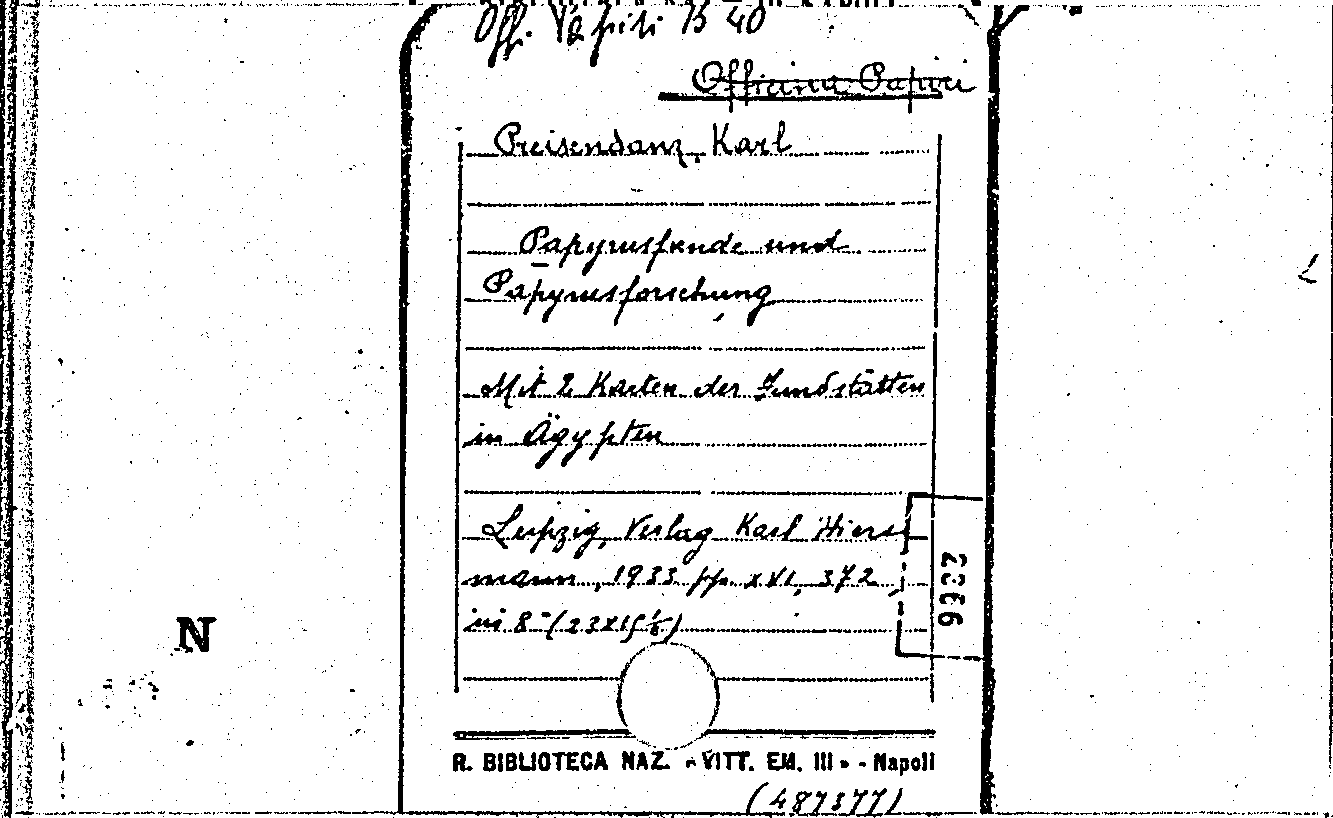 Off. Papiri B 40
Officina Papiri
Preisendanz, Karl
Papyrusfunde und
Papyrusforschung
Mit 2 Karten der Fundstätten
in Ägypten
Leipzig, Verlag Karl Hierse
mann, 1933 pp. XVI, 372
in 8° (23x15½)
N
R. BIBLIOTECA NAZ. «VITT. EM. III» - Napoli
(487377)